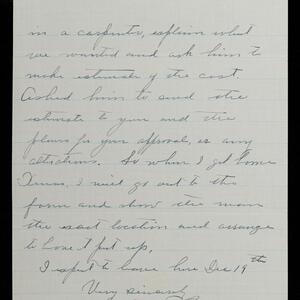 in a carpenter, explain what
we wanted and ask him to
make estimate of the cost.
Asked him to send the
estimate to you and the
plans for your approval, or any
altrations. So when I get home
Xmas, I will go out to the
farm and show the man
the exact location and arrange
to have it put up.
I expect to leave here Dec 19th
Very sincerely